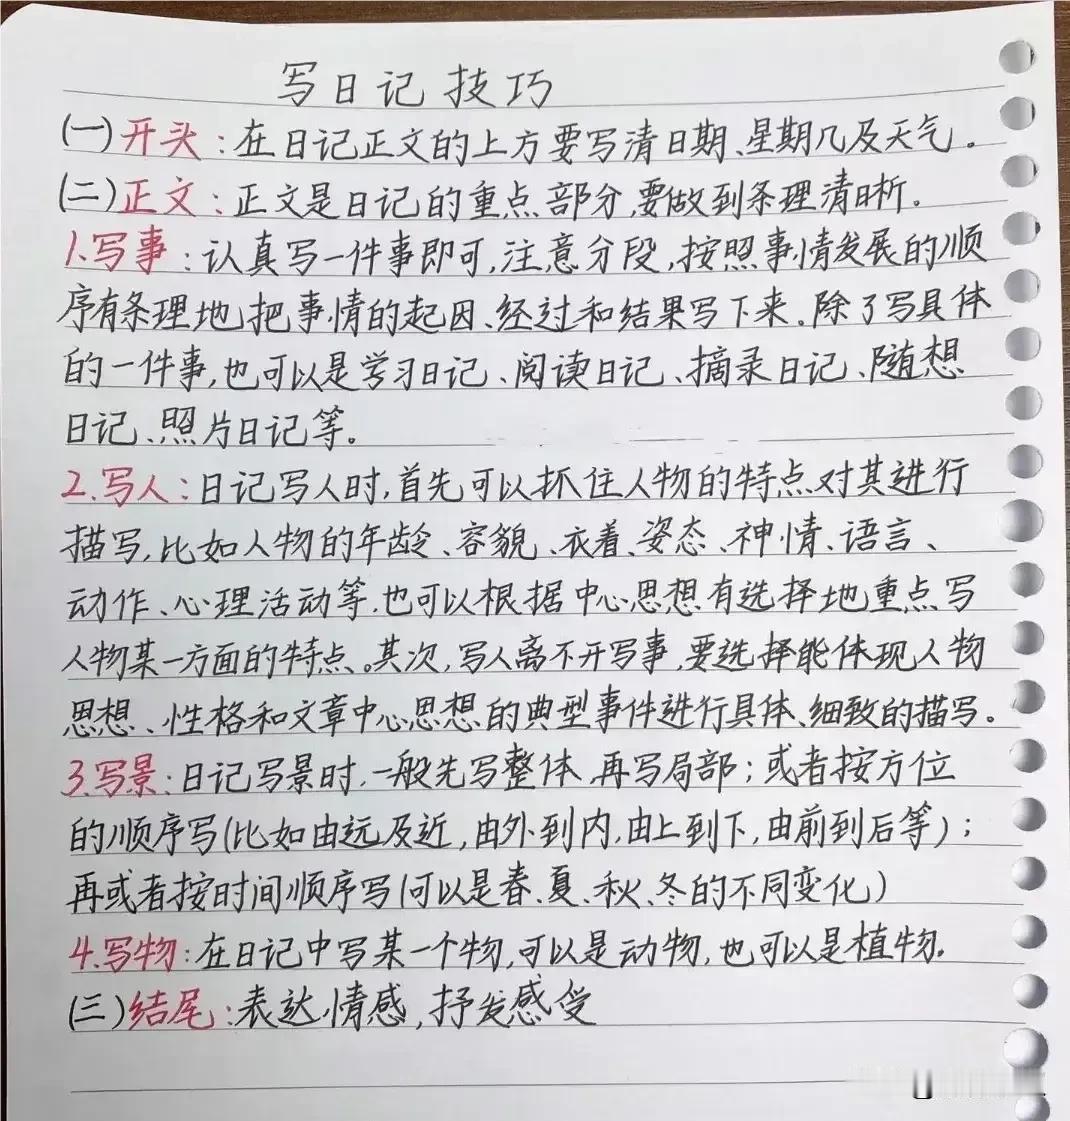 写日记技巧
(一)开头:在日记正文的上方要写清日期、星期几及天气。
(二)正文:正文是日记的重点部分,要做到条理清晰。
1.写事:认真写一件事即可,注意分段,按照事情发展的顺
序有条理地把事情的起因、经过和结果写下来。除了写具体
的一件事,也可以是学习日记、阅读日记、摘录日记、随想
日记、照片日记等。
2.写人:日记写人时,首先可以抓住人物的特点对其进行
描写,比如人物的年龄、容貌、衣着、姿态、神情、语言、
动作、心理活动等,也可以根据中心思想有选择地重点写
人物某一方面的特点。其次,写人离不开写事,要选择能体现人物
思想、性格和文章中心思想的典型事件进行具体、细致的描写。
3.写景:日记写景时,一般先写整体,再写局部;或者按方位
的顺序写(比如由远及近,由外到内,由上到下,由前到后等);
再或者按时间顺序写(可以是春、夏、秋、冬的不同变化)
4.写物:在日记中写某一个物,可以是动物,也可以是植物.
(三)结尾:表达情感,抒发感受